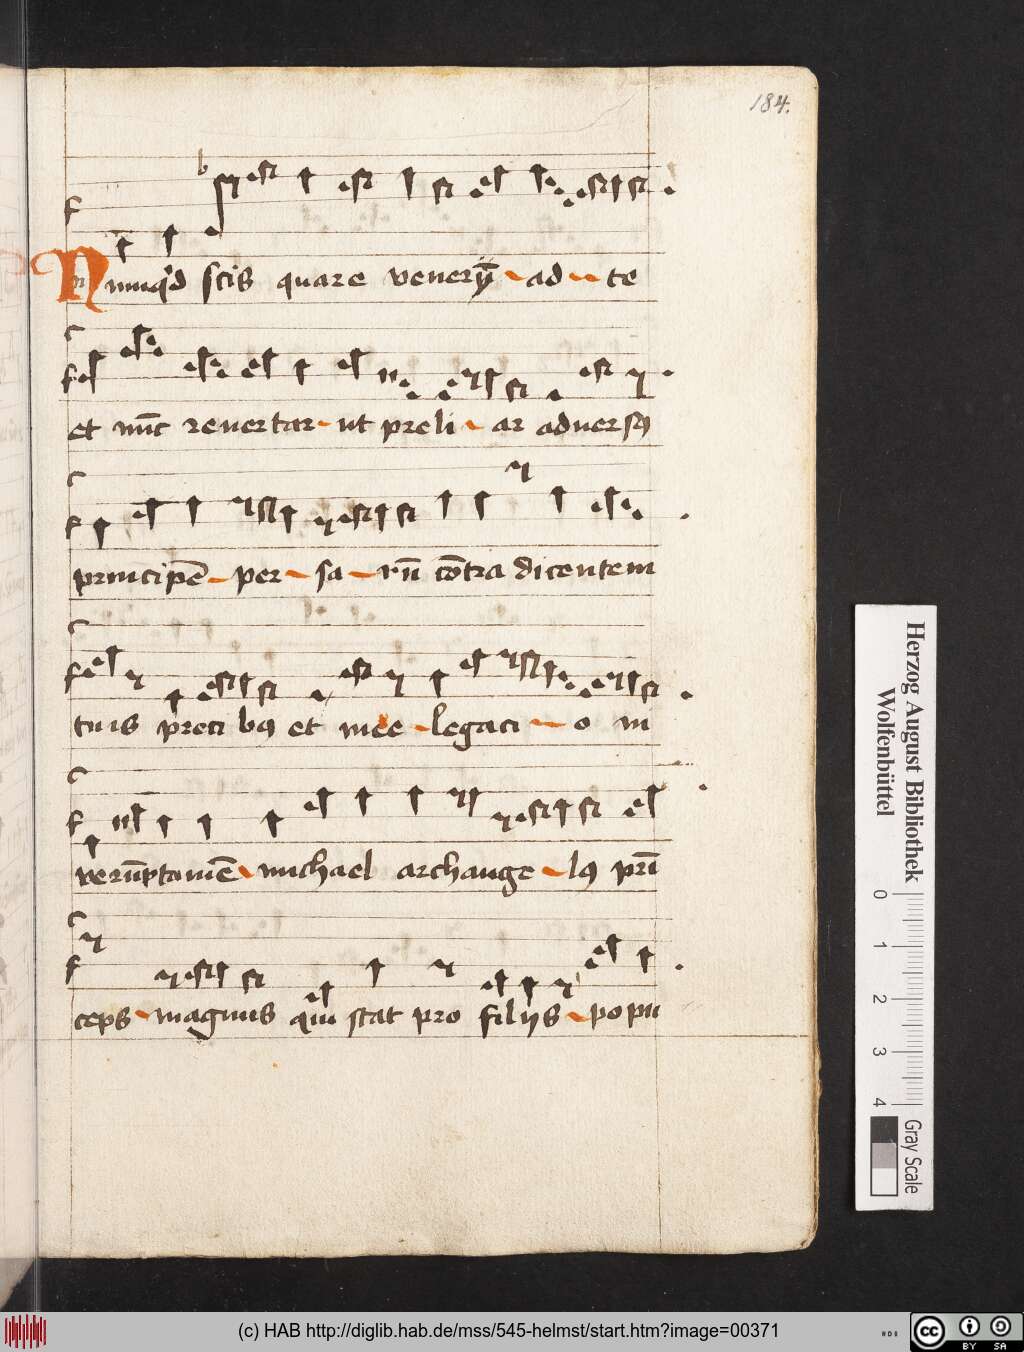 184.
Numqͥd scis quare venerῡ ad te
et nūc reuertar ut preli ar aduersꝰ
principē per sa rū cōtra dicentem
tuis preci bꝫ et mee legaci o ni
verūptamē michael archange lꝰ prī
ceps magnus qui stat pro filiis popu
Herzog August Bibliothek
Wolfenbüttel
0 1 2 3 4
Gray Scale
(c) HAB http://diglib.hab.de/mss/545-helmst/start.htm?image=00371
cc BY SA